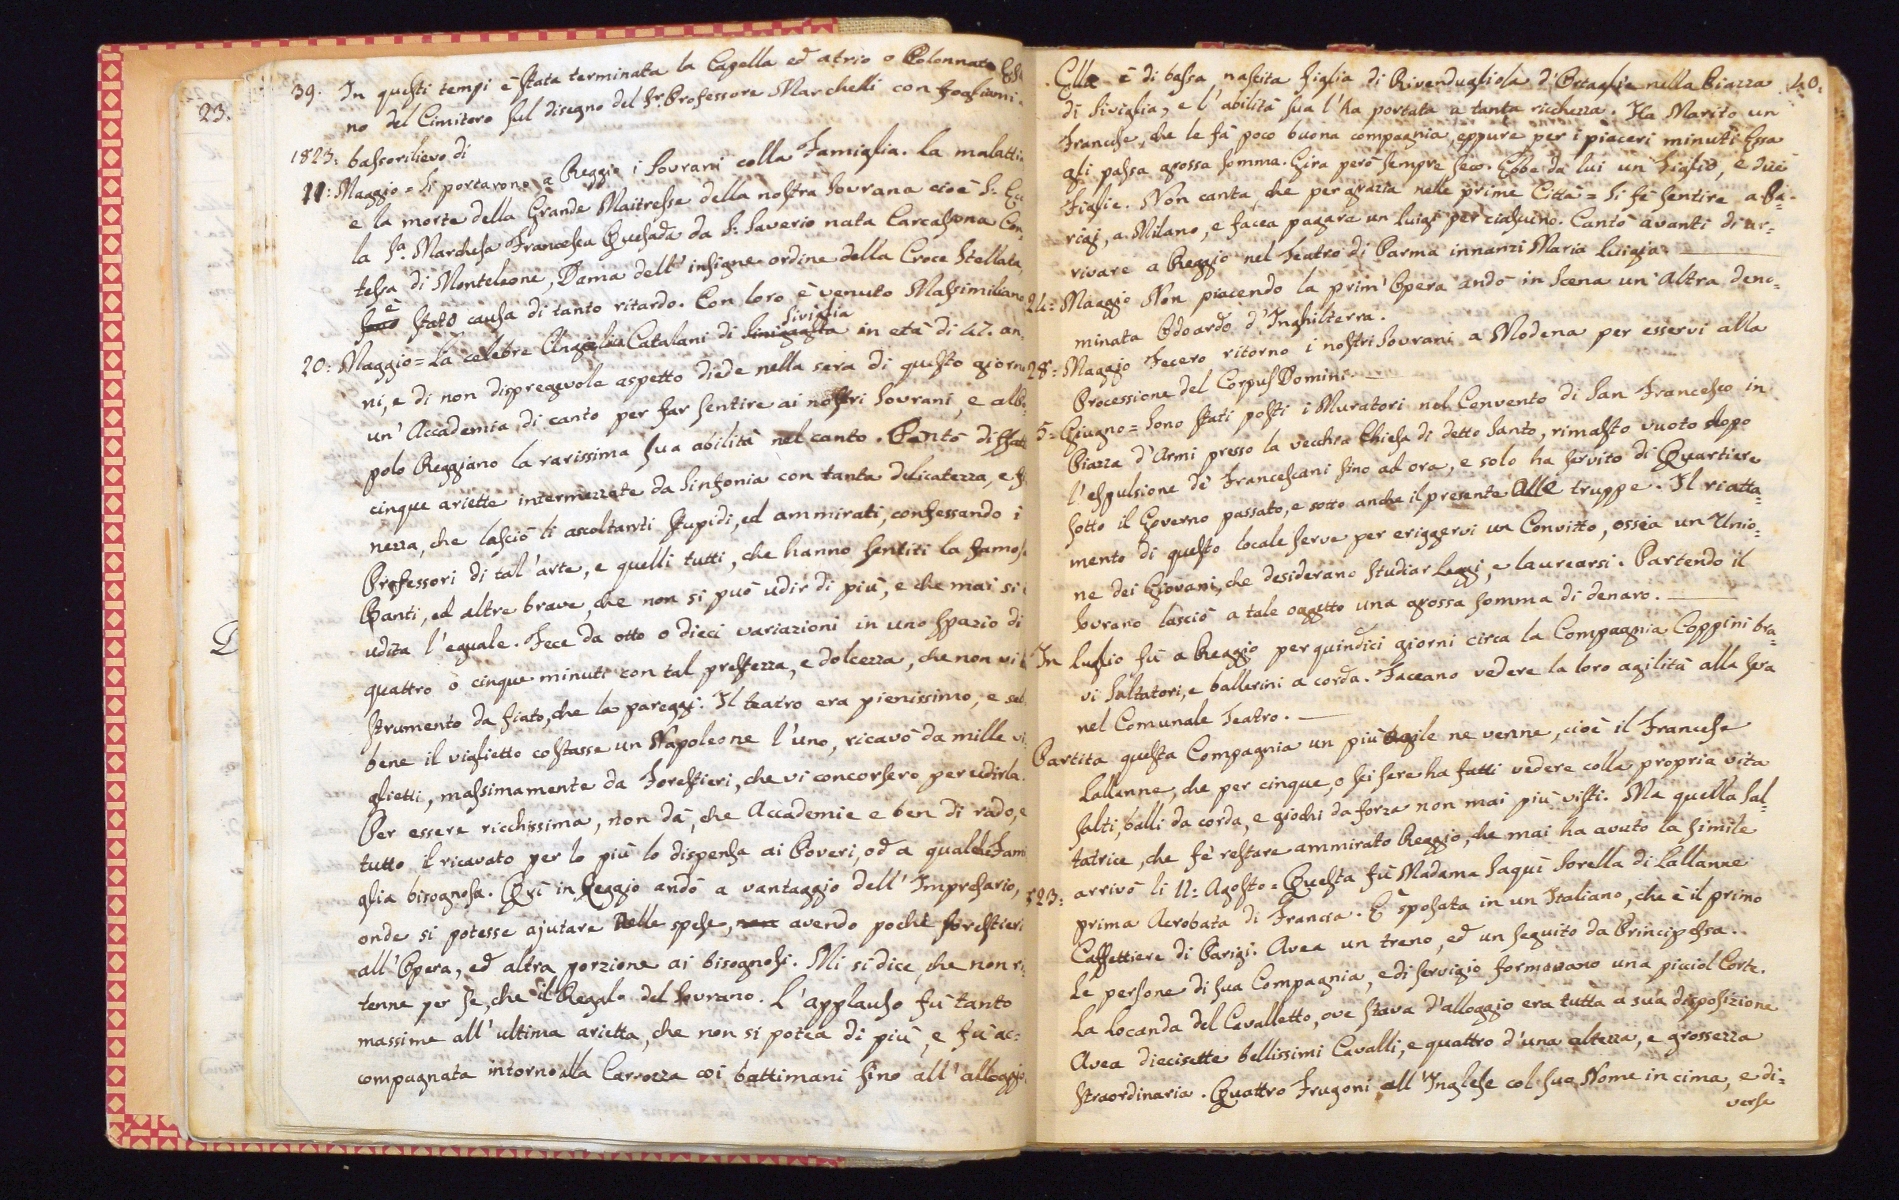 23.
39. In questi tempi è stata terminata la Capella ed atrio o Colonnato
no del Cimitero sul disegno del Sr Professore Marchelli con
1823: bassorilievo di
11: Maggio = Si portarono a Reggio i Sovrani colla Famiglia. La malattia
e la morte della Grande Maitresse della nostra Sovrana cioè S. Ec
la Sa. Marchesa Francesca Quesada da S. Saverio nata Carcassona Con-
tessa di Monteleone, Dama dell' insigne ordine della Croce Stellata
è stato causa di tanto ritardo. Con loro è venuto Massimiliano
20: Maggio = La celebre Angelica Catalani di Siviglia in età di 47. an
ni, e di non dispregevole aspetto diede nella sera di questo giorno
un' Accademia di canto per far sentire ai nostri Sovrani, e al Po
polo Reggiano la rarissima sua abilità nel canto. Cantò diffatti
cinque ariette intermezzate da Sinfonia con tanta delicatezza, e fi
nezza, che lasciò li ascoltanti stupidi, ed ammirati, confessando i
Professori di tal' arte, e quelli tutti, che hanno sentiti la famosa
Banti, ed altre brave, che non si può udir di più, e che mai si è
udita l' eguale. Fece da otto o dieci variazioni in uno spazio di
quattro o cinque minuti con tal prestezza, e dolcezza, che non vi è
strumento da fiato, che la pareggi. Il teatro era pienissimo, e seb
bene il viglietto costasse un Napoleone l' uno, ricavò da mille vi
glietti, massimamente da Forestieri, che vi concorsero per udirla.
Per essere ricchissima, non dà, che Accademie e ben di rado, e
tutto il ricavato per lo più lo dispensa ai Poveri, od a qualche Fami
glia bisognosa. Qui in Reggio andò a vantaggio dell' Impresario,
onde si potesse ajutare nelle spese, non avendo pochi forestieri
all' Opera, ed altra porzione ai bisognosi. Mi si dice, che non ri
tenne per se, che il Regalo del Sovrano. L' applauso fu tanto
massime all' ultima arietta, che non si potea di più, e fu ac=
compagnata intorno alla Carrozza coi battimani sino all' alloggio.
40.
Ella è di bassa nascita figlia di Rivendugliola d'Ortaglie nella Piazza
di Siviglia, e l' abilità sua l' ha portata a tanta ricchezza. Ha Marito un
Francese, che le fà poco buona compagnia, eppure per i piaceri minuti Essa
gli passa grossa somma. Gira però sempre seco. Ebbe da lui un Figlio, e due
Figlie. Non canta, che per grazia nelle prime Città = Si fè sentire a Pa=
rigi, a Milano, e facea pagare un Luigi per ciascuno. Cantò avanti di ar=
rivare a Reggio nel Teatro di Parma innanzi Maria Luigia.
24: Maggio Non piacendo la prim' Opera andò in Scena un' Altra deno=
minata Odoardo d' Inghilterra.
28: Maggio Fecero ritorno i nostri Sovrani a Modena per esservi alla
Processione del Corpus Domini.
5= Giugno = Sono stati posti i Muratori nel Convento di San Francesco in
Piazza d'Armi presso la vecchia Chiesa di detto Santo, rimasto vuoto dopo
l' espulsione de' Francescani sino ad ora, e solo ha servito di Quartiere
sotto il Governo passato, e sotto anche il presente alle truppe. Il riatta=
mento di questo locale serve per eriggervi un Convitto, ossia un Unio=
ne dei Giovani, che desiderano studiar Leggi, e laurearsi. Partendo il
Sovrano lasciò a tale oggetto una grossa somma di denaro.
In Luglio fù a Reggio per quindici giorni circa la Compagnia Coppini bra=
vi Saltatori, e ballerini a corda. Faceano vedere la loro agilità alla sera
nel Comunale Teatro.
Partita questa Compagnia un più agile ne venne, cioè il Francese
Lallanne, che per cinque, o sei sere ha fatti vedere colla propria vita
salti, balli da corda, e giochi da forza non mai più visti. Ma quella Sal=
tatrice, che fè restare ammirato Reggio, che mai ha avuto la simile
823: arrivò li 11: Agosto = Questa fù Madama Saqui Sorella di Lallanne
prima Acrobata di Francia. È sposata in un Italiano, che è il primo
Caffettiere di Parigi. Avea un treno, ed un seguito da Principessa.
Le persone di sua Compagnia, e di servigio formavano una picciol Corte.
La Locanda del Cavalletto, ove stava d'alloggio era tutta a sua disposizione
Avea diecisette bellissimi Cavalli, e quattro d'una altezza, e grossezza
straordinaria. Quattro Frugoni all' Inglese col suo Nome in cima, e di=
verse